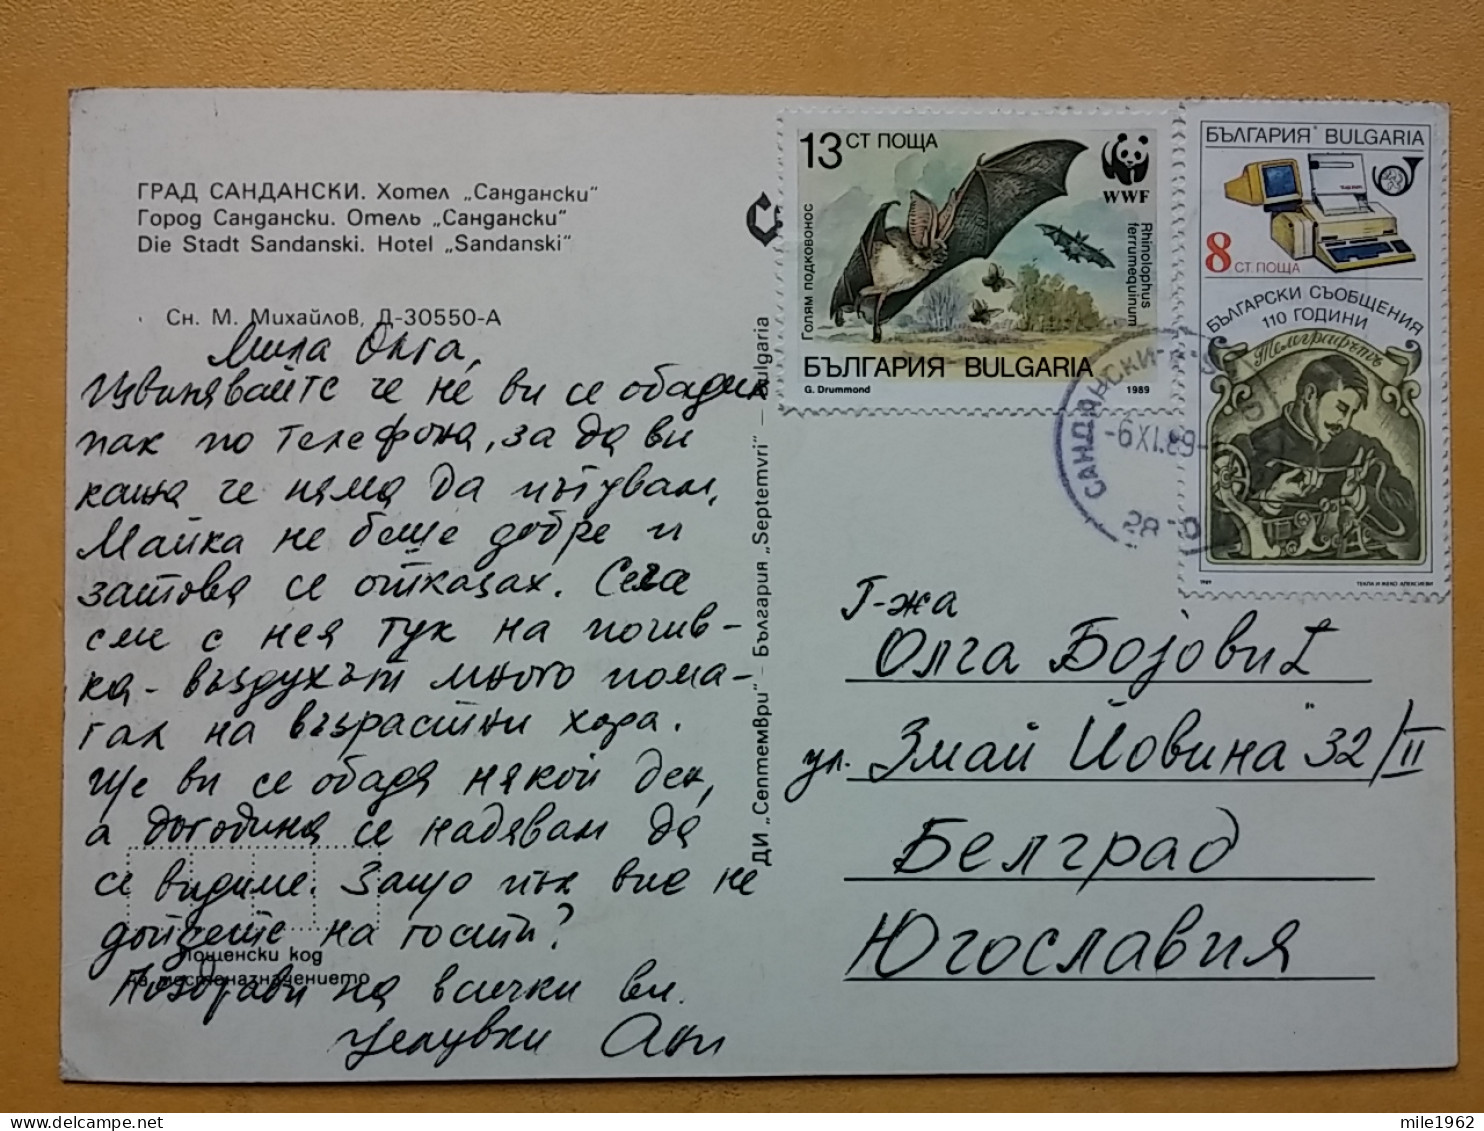 ГРАД САНДАНСКИ. Хотел „Сандански"
Город Сандански. Отель „Сандански"
Die Stadt Sandanski. Hotel „Sandanski"
Сн. М. Михайлов, Д-30550-А
Мила Олга,
Извинявайте че не ви се обадих
пак по телефона, за да ви
кажа че няма да пътувам.
Майка не беше добре и
затова се отказах. Сега
сме с нея тук на почив-
ка - въздухът много пома-
гал на възрастни хора.
Ще ви се обадя някой ден,
а догодина се надявам да
се видиме. Защо пък вие не
дойдете на гости?
Пощенски код
на местоназначението
Поздрави на всички ви.
Целувки Ани
ДИ „Септември" — България „Septemvri" — Bulgaria
13 СТ ПОЩА
WWF
Голям подковонос
Rhinolophus
ferrumequinum
БЪЛГАРИЯ BULGARIA
G. Drummond 1989
БЪЛГАРИЯ BULGARIA
8 СТ ПОЩА
БЪЛГАРСКИ СЪОБЩЕНИЯ
110 ГОДИНИ
Телеграфътъ
1989 ТЕКЛА И ЖЕКО АЛЕКСИЕВИ
САНДАНСКИ
-6XI.89-
Г-жа
Олга Бојовић
ул. Змай Йовина 32/II
Белград
Югославия
mile1962